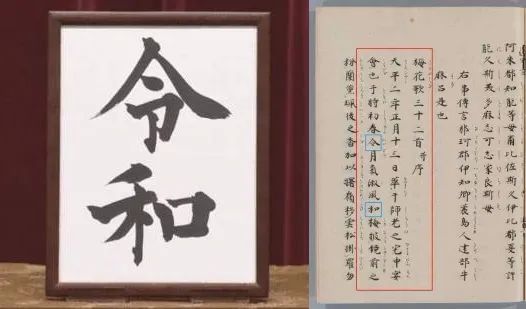 令和
阿米都知能等母爾比佐斯久伊比都夏等許
能久斯美多麻志可志家良斯母
右事傳言那珂郡伊知郷蓑島人建部牛
麻呂是也
梅花歌三十二首 并序
天平二年正月十三日萃于師老之宅申宴
會也于時初春令月氣淑風和梅披鏡前之
粉蘭薫珮後之香加以曙嶺移雲松掛羅勿